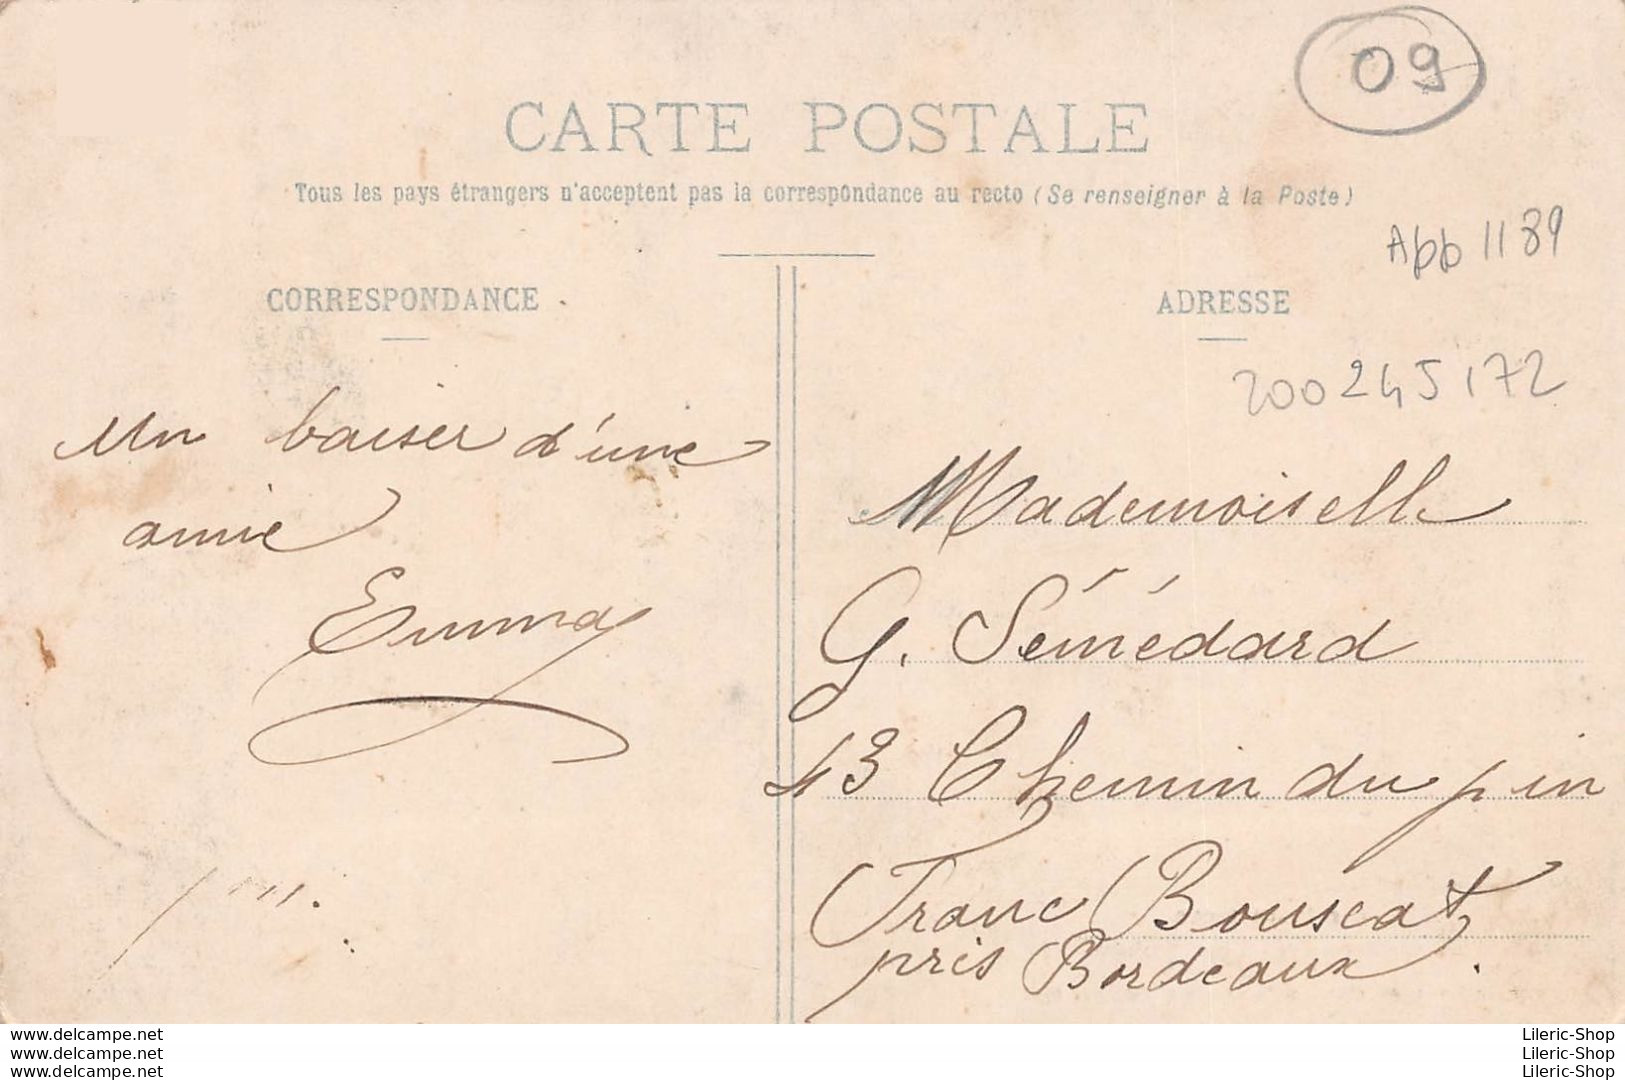 09
CARTE POSTALE
Tous les pays étrangers n'acceptent pas la correspondance au recto (Se renseigner à la Poste)
App 1189
CORRESPONDANCE
ADRESSE
200245172
Un baiser d'une
amie
Emma
Mademoiselle
G. Sémédard
43 Chemin du pin
Franc Bouscat
près Bordeaux.
www.delcampe.net
emma
www.delcampe.net
Lileric-Shop
Lileric-Shop
Lileric-Shop